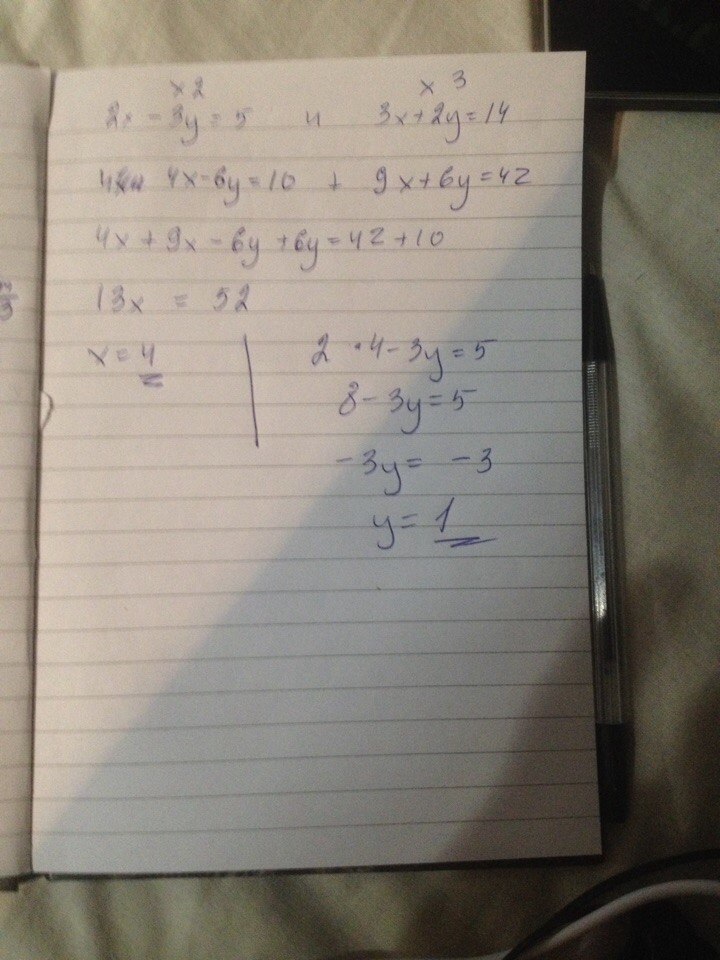 x 2 x 3
2x - 3y = 5 и 3x + 2y = 14
4x - 6y = 10 + 9x + 6y = 42
4x + 9x - 6y + 6y = 42 + 10
13x = 52
x = 4
2 · 4 - 3y = 5
8 - 3y = 5
-3y = -3
y = 1